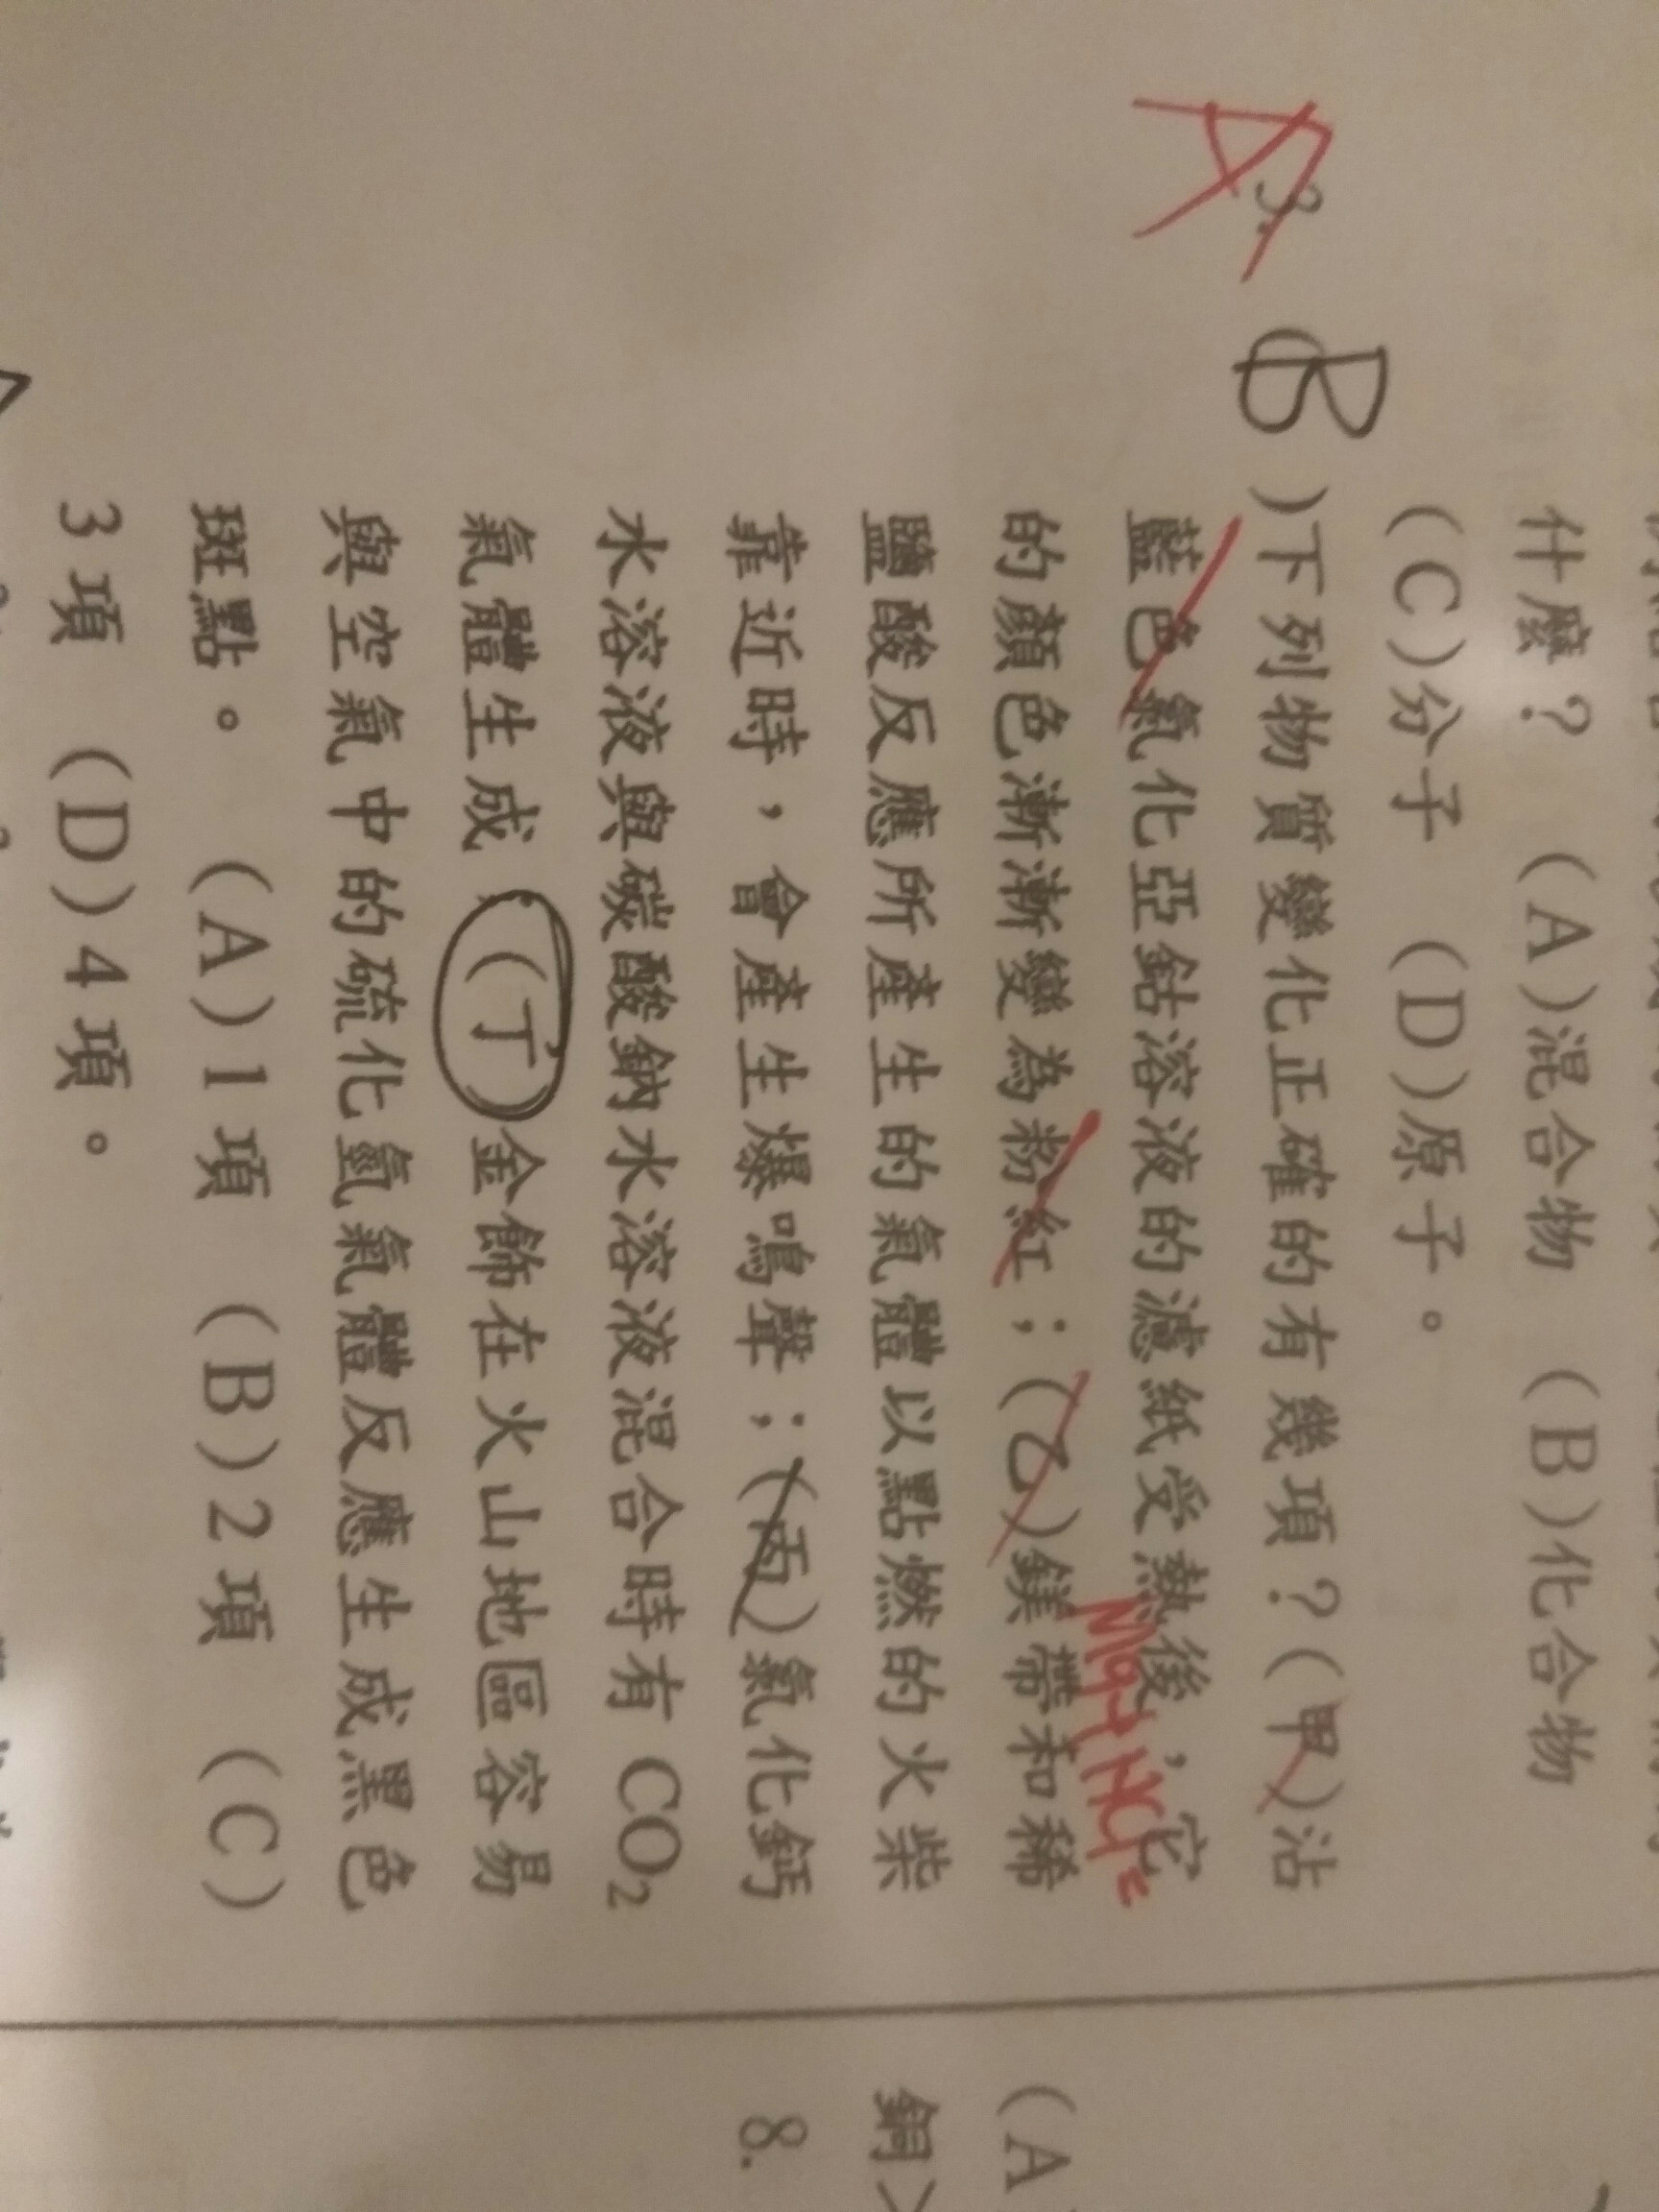 什麼？ (A)混合物 (B)化合物
(C)分子 (D)原子。
A
3. B )下列物質變化正確的有幾項？(甲)沾
藍色氯化亞鈷溶液的濾紙受熱後，它
Mg+HCl=
的顏色漸漸變為粉紅；(乙)鎂帶和稀
鹽酸反應所產生的氣體以點燃的火柴
靠近時，會產生爆鳴聲；(丙)氯化鈣
水溶液與碳酸鈉水溶液混合時有 CO₂
氣體生成；(丁)金飾在火山地區容易
與空氣中的硫化氫氣體反應生成黑色
斑點。 (A)1項 (B)2項 (C)
3項 (D)4項。
(A
銅
8.